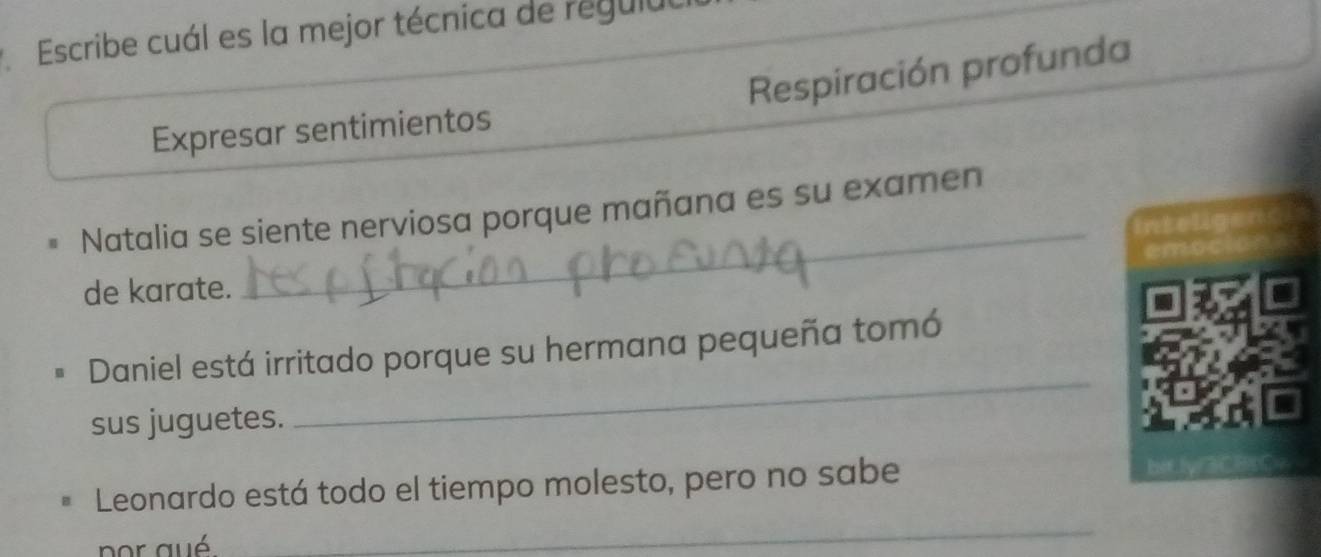 Escribe cuál es la mejor técnica de
Respiración profunda
Expresar sentimientos
Natalia se siente nerviosa porque mañana es su examen
de karate. respiracion profunta
Daniel está irritado porque su hermana pequeña tomó
sus juguetes.
Leonardo está todo el tiempo molesto, pero no sabe
por qué.
Inteligencia
emocional